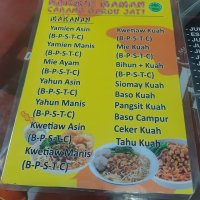 CABANG GEROK JATI
MAKANAN
Yamien Asin
(B-P-S-T-C)
Yamien Manis
(B-P-S-T-C)
Mie Ayam
(B-P-S-T-C)
Yahun Asin
(B-P-S-T-C)
Yahun Manis
(B-P-S-T-C)
Kwetiaw Asin
(B-P-S-T-C)
Kwetiaw Manis
(B-P-S-T-C)
Kwetiaw Kuah
(B-P-S-T-C)
Mie Kuah
(B-P-S-T-C)
Bihun + Kuah
(B-P-S-T-C)
Siomay Kuah
Baso Kuah
Pangsit Kuah
Baso Campur
Ceker Kuah
Tahu Kuah